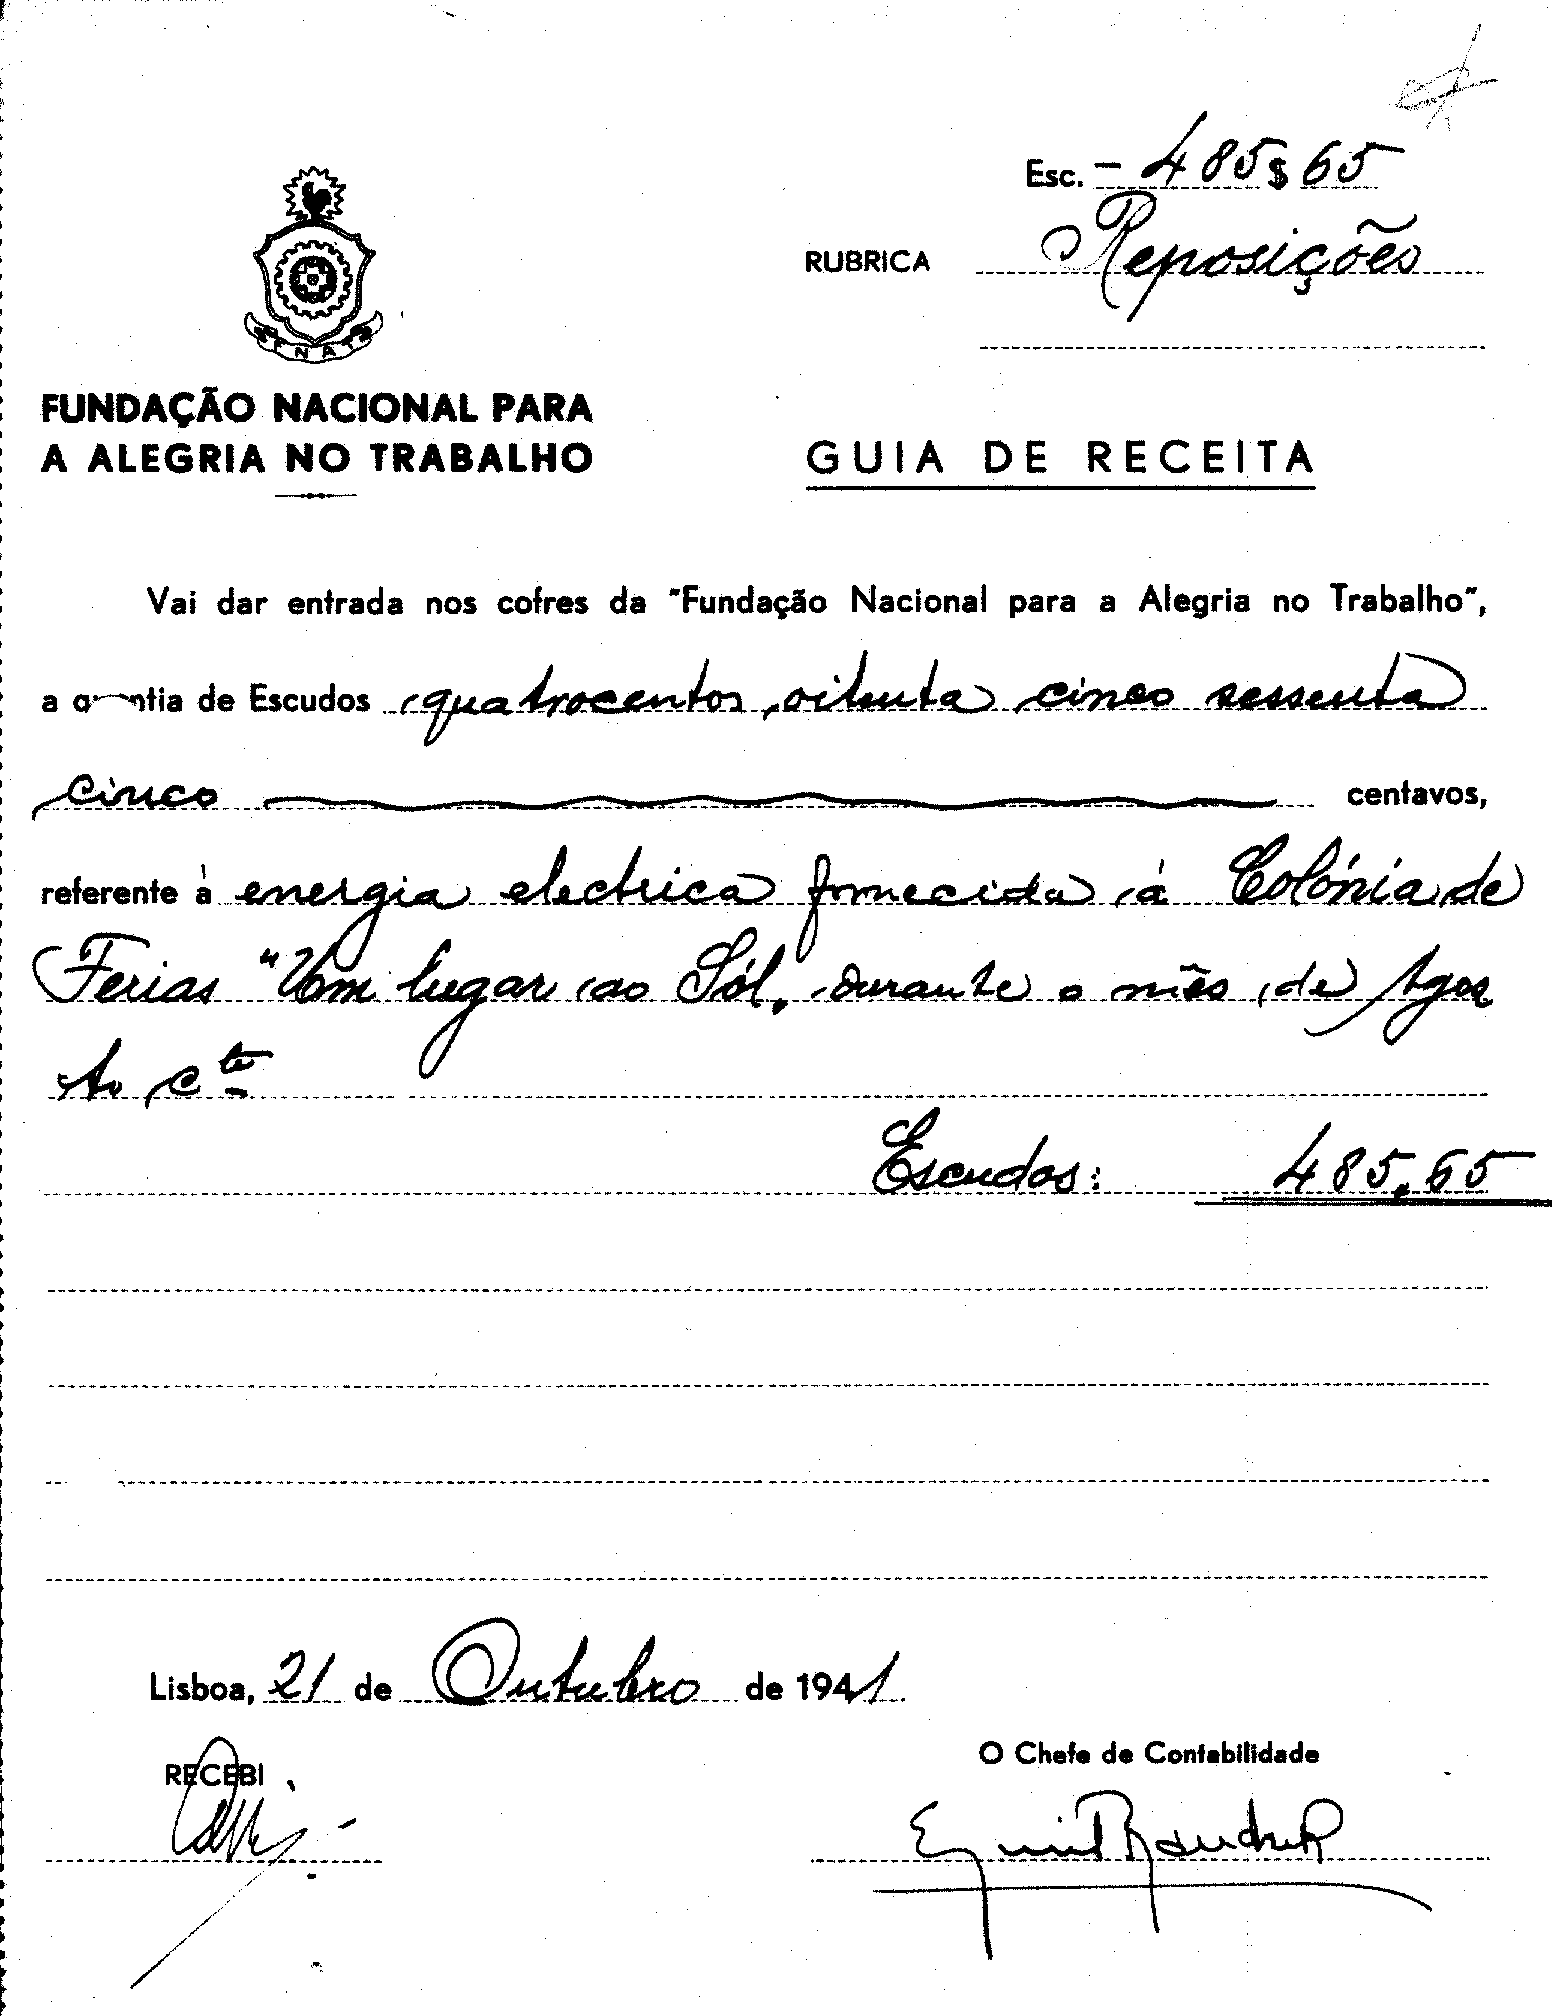 Esc. - 485$65
RUBRICA Reposições
FNAT
FUNDAÇÃO NACIONAL PARA
A ALEGRIA NO TRABALHO
GUIA DE RECEITA
Vai dar entrada nos cofres da "Fundação Nacional para a Alegria no Trabalho",
a quantia de Escudos quatrocentos, oitenta cinco sessenta
cinco centavos,
referente à energia electrica fornecida á Colónia de
Ferias "Um lugar ao Sól" durante o mês de Agos
to cte
Escudos: 485.65
Lisboa, 21 de Outubro de 1941
RECEBI
O Chefe de Contabilidade